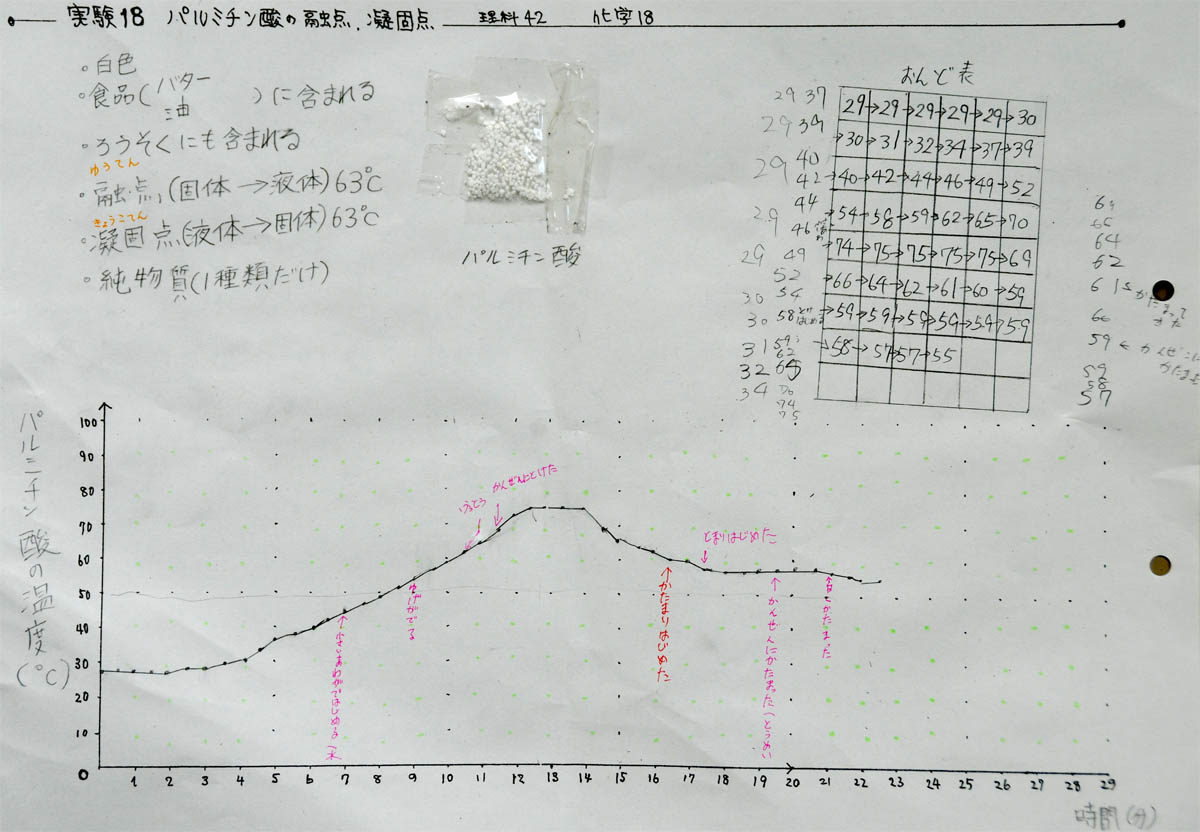 実験18 パルミチン酸の融点、凝固点 理科42 化学18
・白色
・食品(バター
油)に含まれる
・ろうそくにも含まれる
ゆうてん
・融点、(固体→液体)63℃
ぎょうこてん
・凝固点(液体→固体)63℃
・純物質(1種類だけ)
パルミチン酸
おんど表
29→29→29→29→29→30
→30→31→32→34→37→39
→40→42→44→46→49→52
→54→58→59→62→65→70
→74→75→75→75→75→69
→66→64→62→61→60→59
→59→59→59→59→59→59
→58→57→57→55
29 37
29 39
29 40
42
44
29
46
29 49
52
30 54
30 58 とけはじめる
31 59
62
32 65
34 70
74
75
66
64
62
61
かたまって
きた
60
59 ← かんぜんに
かたまる
59
58
57
パルミチン酸の温度(℃)
100
90
80
70
60
50
40
30
20
10
0
小さいあわがではじめる(水
ゆげがでる
かんぜんにとけた
かたまりはじめた
とまりはじめた
かんぜんにかたまった(とうめい
白くかたまった
1 2 3 4 5 6 7 8 9 10 11 12 13 14 15 16 17 18 19 20 21 22 23 24 25 26 27 28 29
時間(分)